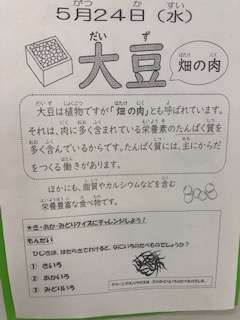 5月24日（水）
大豆
畑の肉
大豆は植物ですが「畑の肉」とも呼ばれています。
それは、肉に多く含まれている栄養素のたんぱく質を
多く含んでいるからです。たんぱく質には、主にからだ
をつくる働きがあります。
ほかにも、脂質やカルシウムなどを含む
栄養豊富な食べ物です。
★き・あか・みどりクイズにチャレンジしよう！
もんだい
ひじきは、はたらきでわけると、なにいろのたべものでしょうか？
① きいろ
② あかいろ
③ みどりいろ